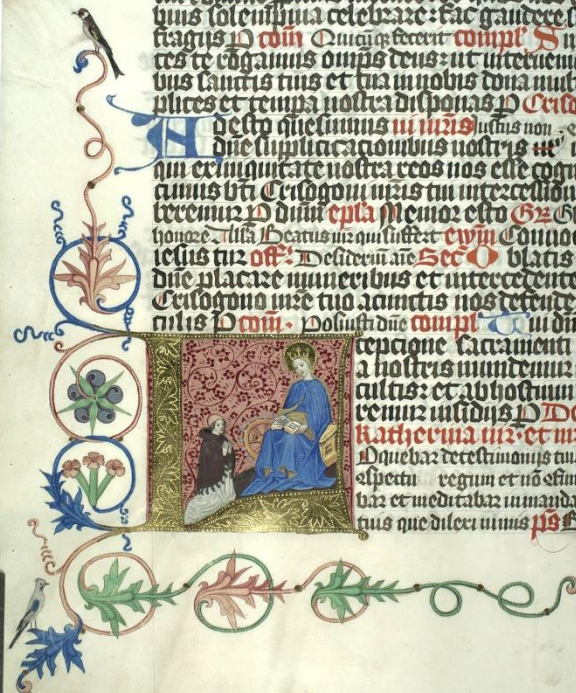 uus solempnia celebrare : fac gaudere s
fragijs P com Quicuq fecerit compl S
tes te rogamus omps deus : ut interueni
bus sanctis tuis et tua in nobis dona mul
plices et tempa nostra disponas P Criso
Adesto quesumus Iustus non
dne supplicacionibus nostris ut
qui ex iniquitate nostra reos nos esse cogn
cimus bti Crisogoni mris tui intercession
beremur P dnm epla Memor esto Gr
honore Alla Beatus uir qui suffert ewm Conuo
iesus tur off: Desiderium aie Sec Oblatis
dne placare muneribus et intercedente
Crisogono mre tuo a cunctis nos defende
culis P com. Posuisti dne compl Tui dn
cepcione sacramenti
a nostris mundemur
cultis : et ab hostium
remur insidijs P Do
katherina uir · et mr
Loquebar de testimonijs tuis
aspectu regum et nō
bar et meditabar in manda
tuis que dilexi nimis ps B